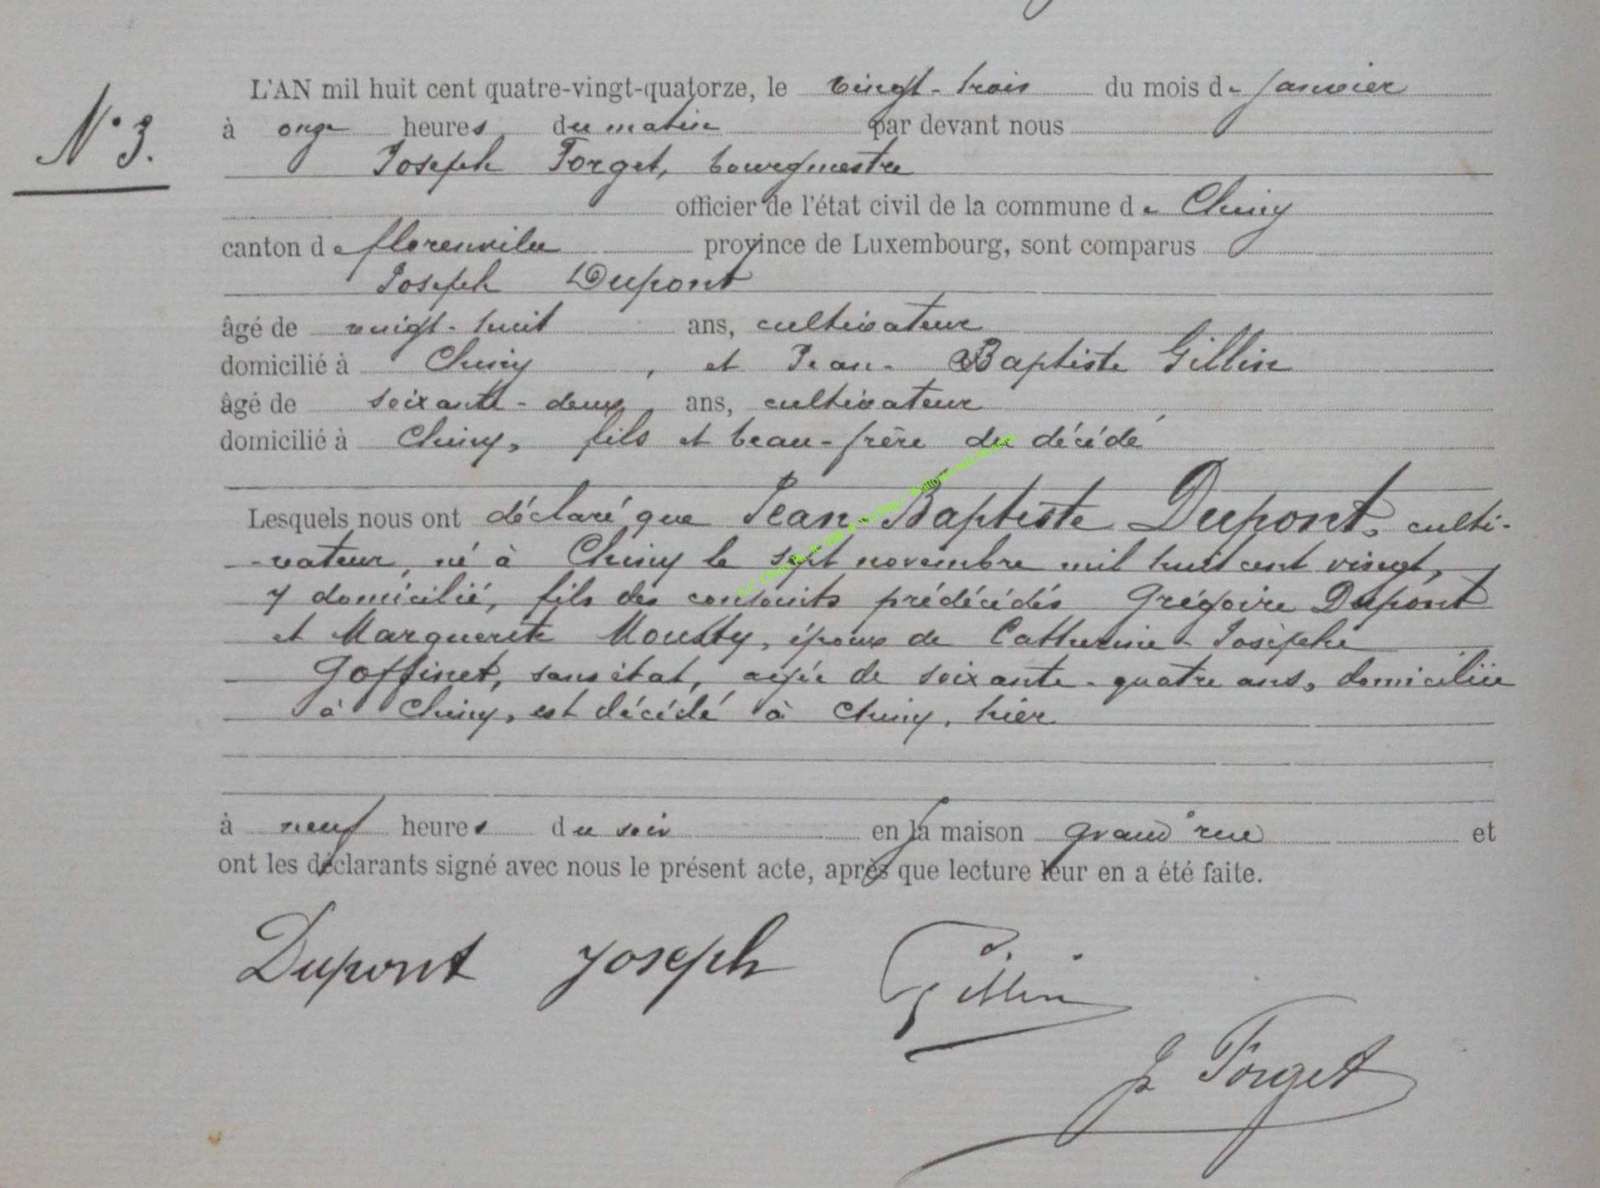 N° 3.
L'AN mil huit cent quatre-vingt-quatorze, le vingt-trois du mois de janvier
à onze heures du matin par devant nous
Joseph Forget, bourgmestre
officier de l'état civil de la commune de Chiny
canton de florenville province de Luxembourg, sont comparus
Joseph Dupont
âgé de vingt-huit ans, cultivateur
domicilié à Chiny, et Jean-Baptiste Gillin
âgé de soixante-deux ans, cultivateur
domicilié à Chiny, fils et beau-frère du décédé
Lesquels nous ont déclaré que Jean-Baptiste Dupont, culti-
-vateur, né à Chiny le sept novembre mil huit cent vingt,
y domicilié, fils des conjoints prédécédés Grégoire Dupont
et Marguerite Mousty, époux de Catherine-Josèphe
Goffinet, sans état, agée de soixante-quatre ans, domiciliée
à Chiny, est décédé à Chiny, hier
à neuf heures du soir en la maison grand'rue et
ont les déclarants signé avec nous le présent acte, après que lecture leur en a été faite.
Dupont Joseph Gillin
J Forget